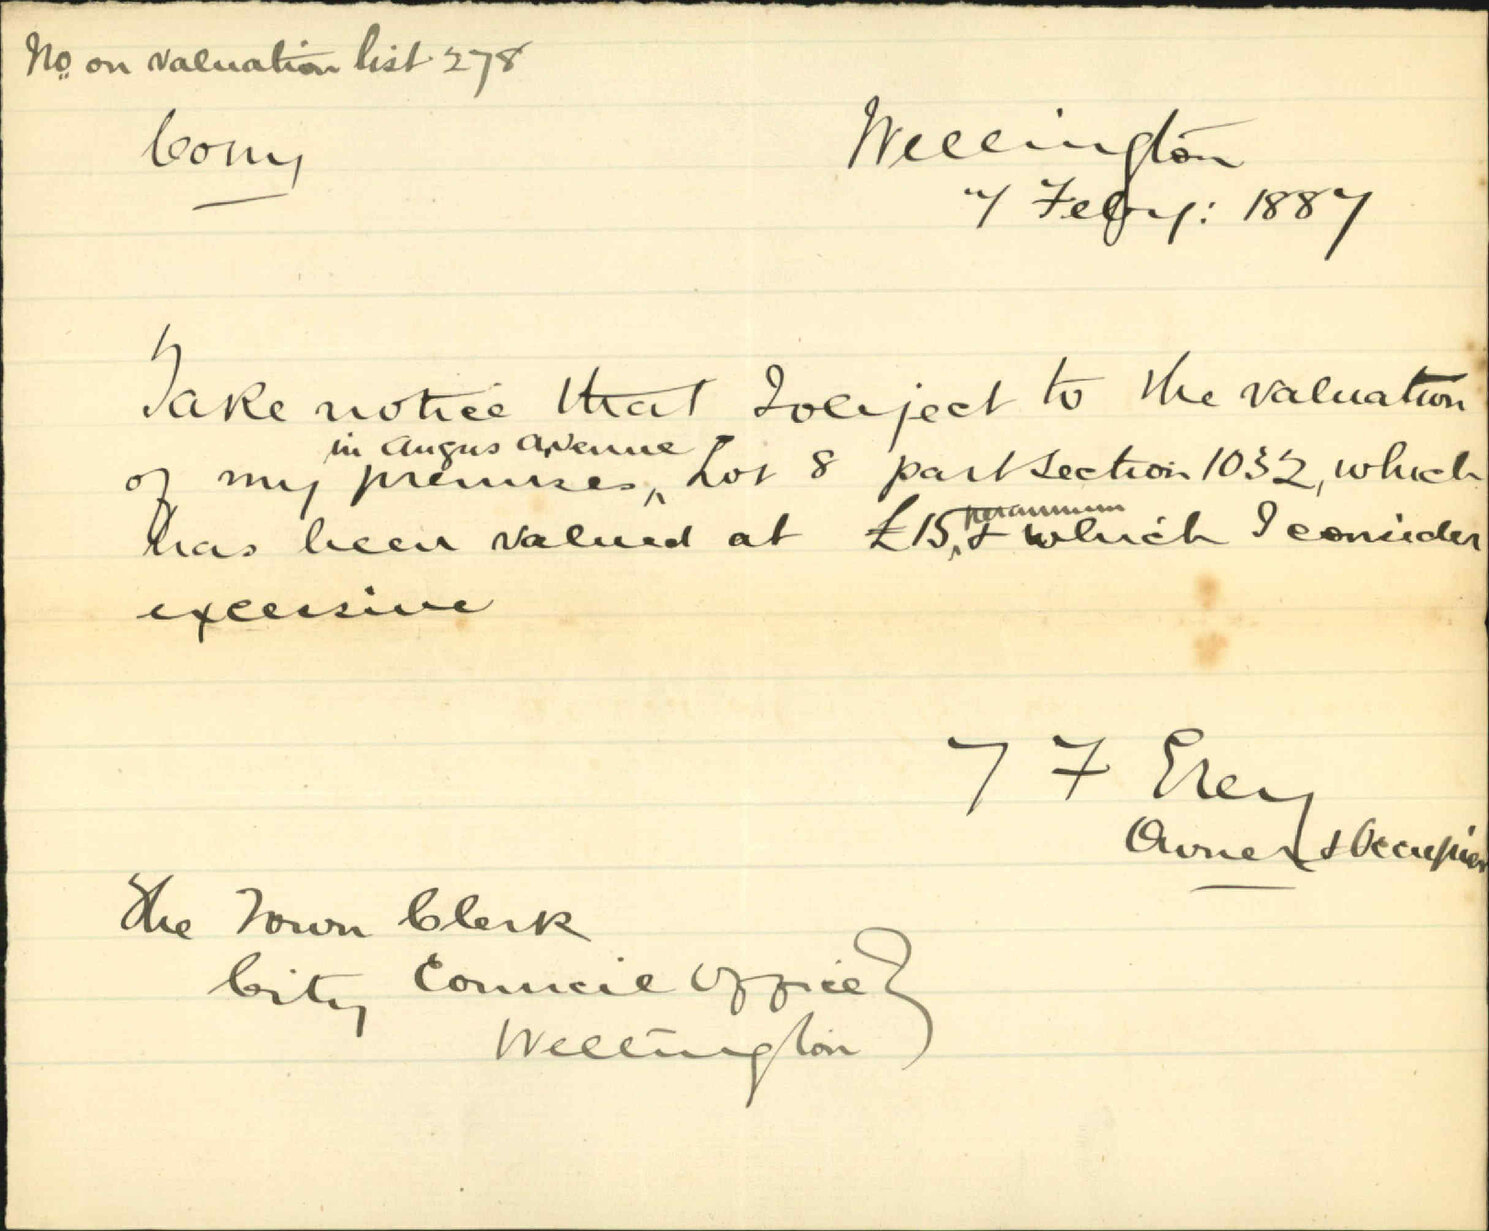 No on valuation list 278
Copy
Wellington
7 Febry: 1887
Take notice that I object to the valuation
of my premises, in Angus Avenue Lot 8 part section 1032, which
has been valued at £15, per annum & which I consider
excessive
T F Grey
Owner & Occupier
The Town Clerk
City Council Office
Wellington